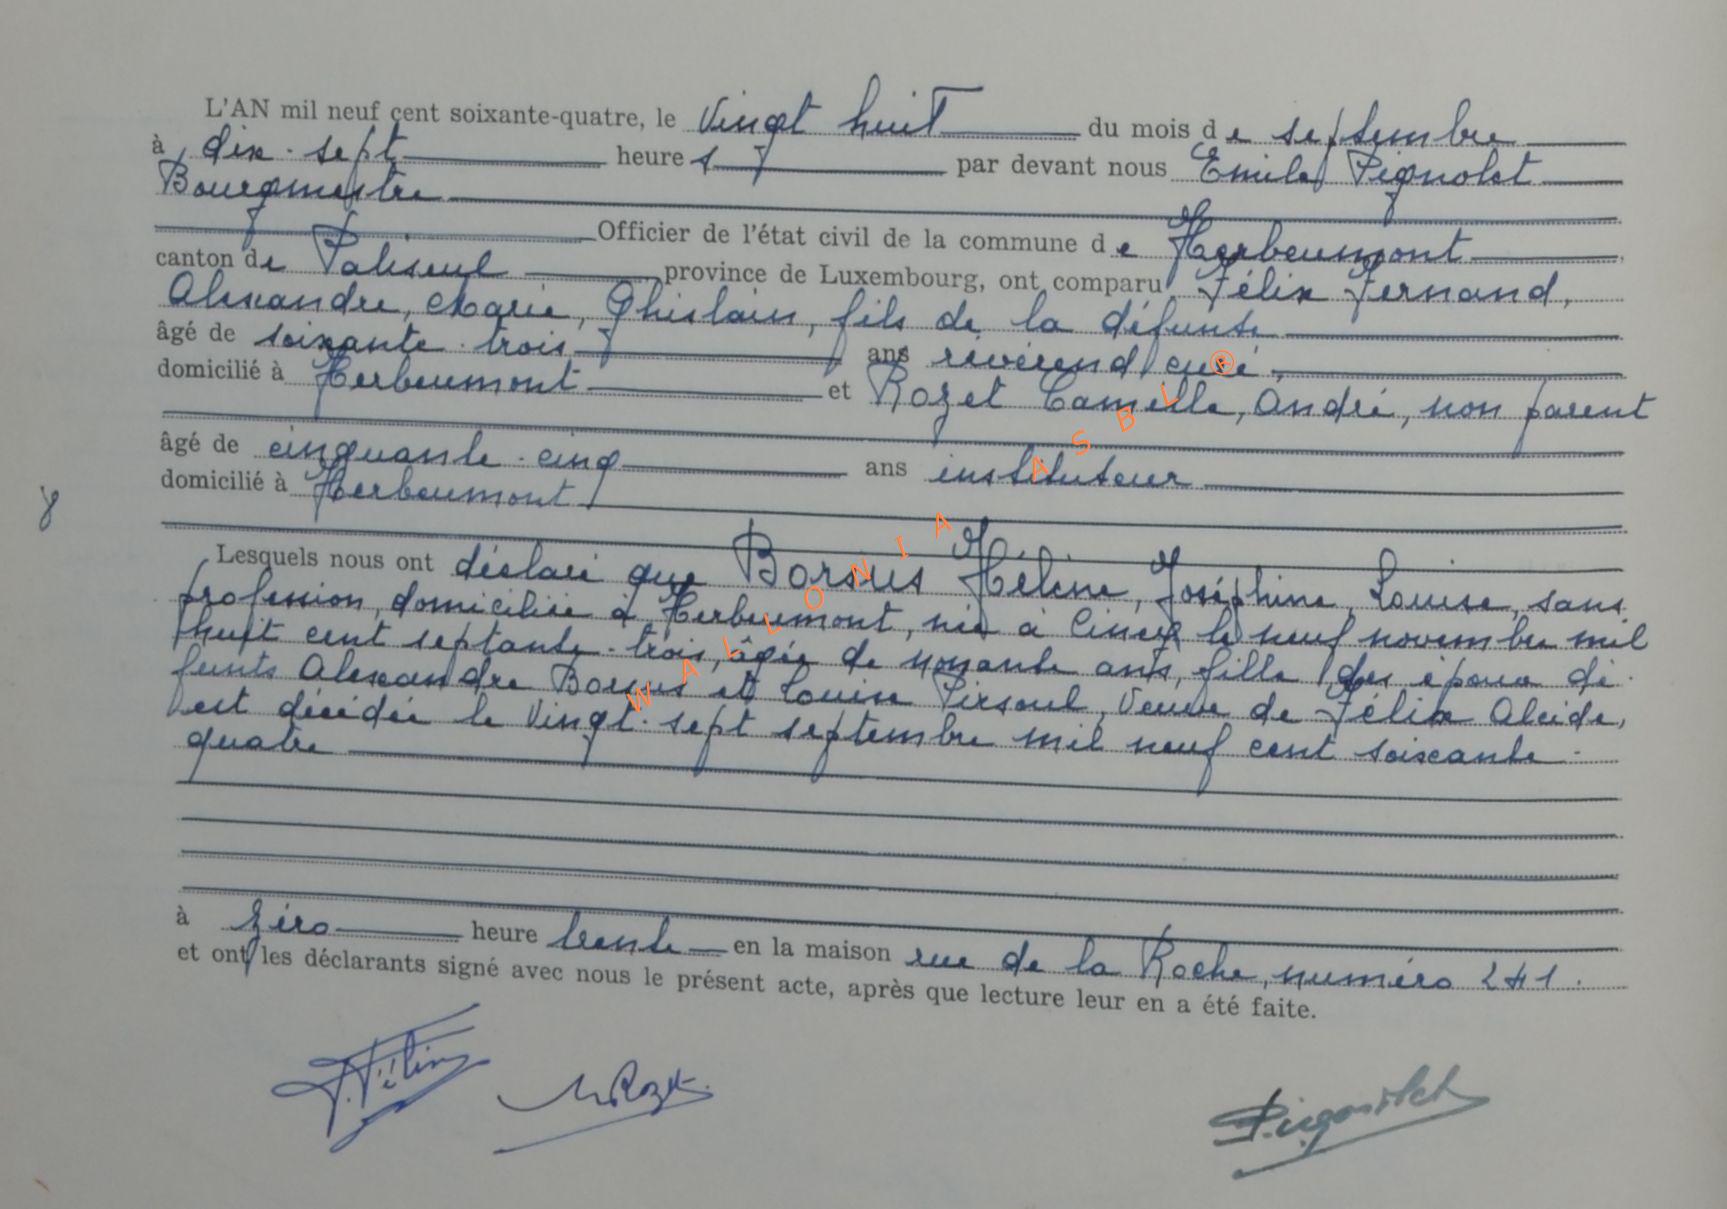 L'AN mil neuf cent soixante-quatre, le vingt huit du mois de septembre
à dix-sept heures par devant nous Emile Pignolet
Bourgmestre
Officier de l'état civil de la commune de Herbeumont
canton de Paliseul province de Luxembourg, ont comparu Félix Fernand,
Alexandre, Marie, Ghislain, fils de la défunte
âgé de soixante-trois ans révérend curé,
domicilié à Herbeumont et Rozet Camille, André, non parent
âgé de cinquante-cinq ans instituteur
domicilié à Herbeumont
8
Lesquels nous ont déclaré que Borsus Hélène, Joséphine, Louise, sans
profession, domiciliée à Herbeumont, née à Ciney le neuf novembre mil
huit cent septante-trois, âgée de nonante ans, fille des époux dé-
funts Alexandre Borsus et Louise Pirsoul, veuve de Félix Alcide,
est décédée le vingt-sept septembre mil neuf cent soixante-
quatre
à zéro heure trente en la maison rue de la Roche, numéro 241.
et ont les déclarants signé avec nous le présent acte, après que lecture leur en a été faite.
F. Félix Rozet Pignolet
WALLONIA ASBL ®